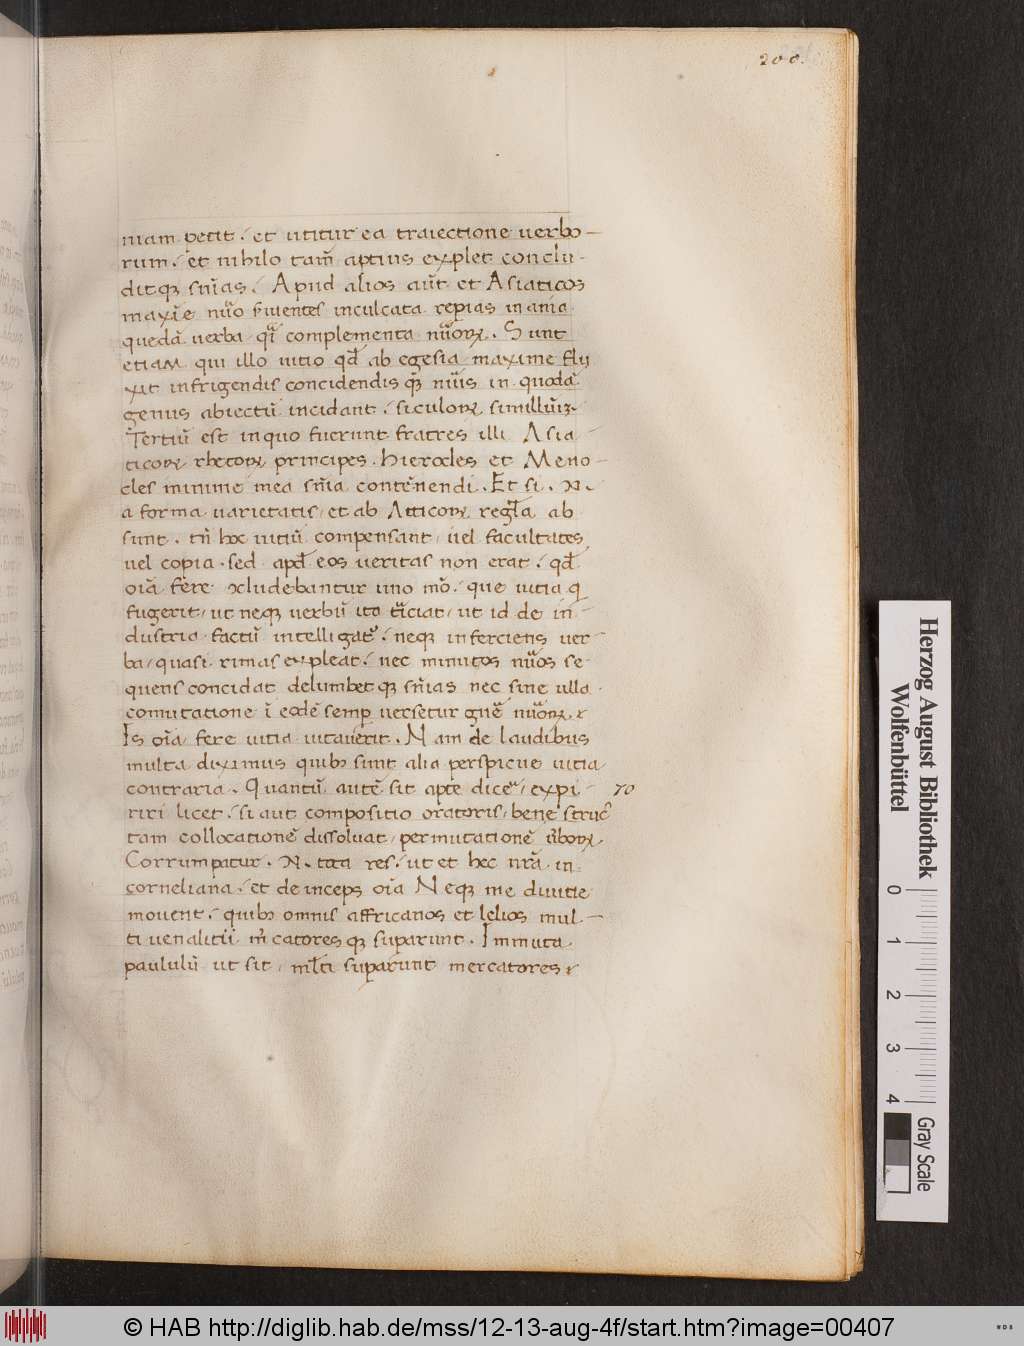 200.
niam petit. et utitur ea traiectione verbo-
rum. et nihilo tam̄ aptius explet conclu-
ditq; sn̄ias. Apud alios aut̄ et Asiaticos
maxīe nūo s̄uientes inculcata repias inania
quedā verba q̄i complementa nūoꝝ. Sunt
etiam qui illo vitio qđ ab egesia maxime flu
xit infrigendis concidendis q; nūis in quodā
genus abiectū incidant. siculoꝝ simillūz.
Tertiū est in quo fuerunt fratres illi Asia
ticoꝝ rhetoꝝ principes. Hierocles et Mene-
cles minime mea sn̄ia contēnendi. Et si. N.
a forma varietatis, et ab Atticoꝝ regl̄a ab
sunt. tn̄ hoc vitiū compensant, vel facultates,
vel copia. sed apđ eos veritas non erat. qđ
oīa fere ꝯcludebantur uno mō. que vitia q̄
fugerit, ut neq; verbū ita t̄iciat, ut id de in-
dustria factū intelligat̄. neq; inferciens ver-
ba, quasi rimas expleat. nec minutos nūos se-
quens concidat delumbet q; sn̄ias nec sine ulla
comutatione ī eodē semp versetur gn̄e nūoꝝ. &
Is oīa fere vitia vitaverit. Nam de laudibus
multa diximus quib; sunt alia perspicue vitia
contraria. Quantū autē sit apte dice͛, expi-
70
riri licet. si aut compositio oratoris, bene struc
tam collocationē dissoluat, permutatione v̄boꝝ.
Corrumpatur. N. tota res. ut et hec nr̄a in
corneliana. et deinceps oīa Neq; me divitie
movent. quib; omnis affricanos et lelios mul-
ti venalitii m̄catores q; suparunt. Immuta
paululū ut sit, ml̄ti suparunt mercatores &
© HAB http://diglib.hab.de/mss/12-13-aug-4f/start.htm?image=00407
Herzog August Bibliothek
Wolfenbüttel
0 1 2 3 4
Gray Scale